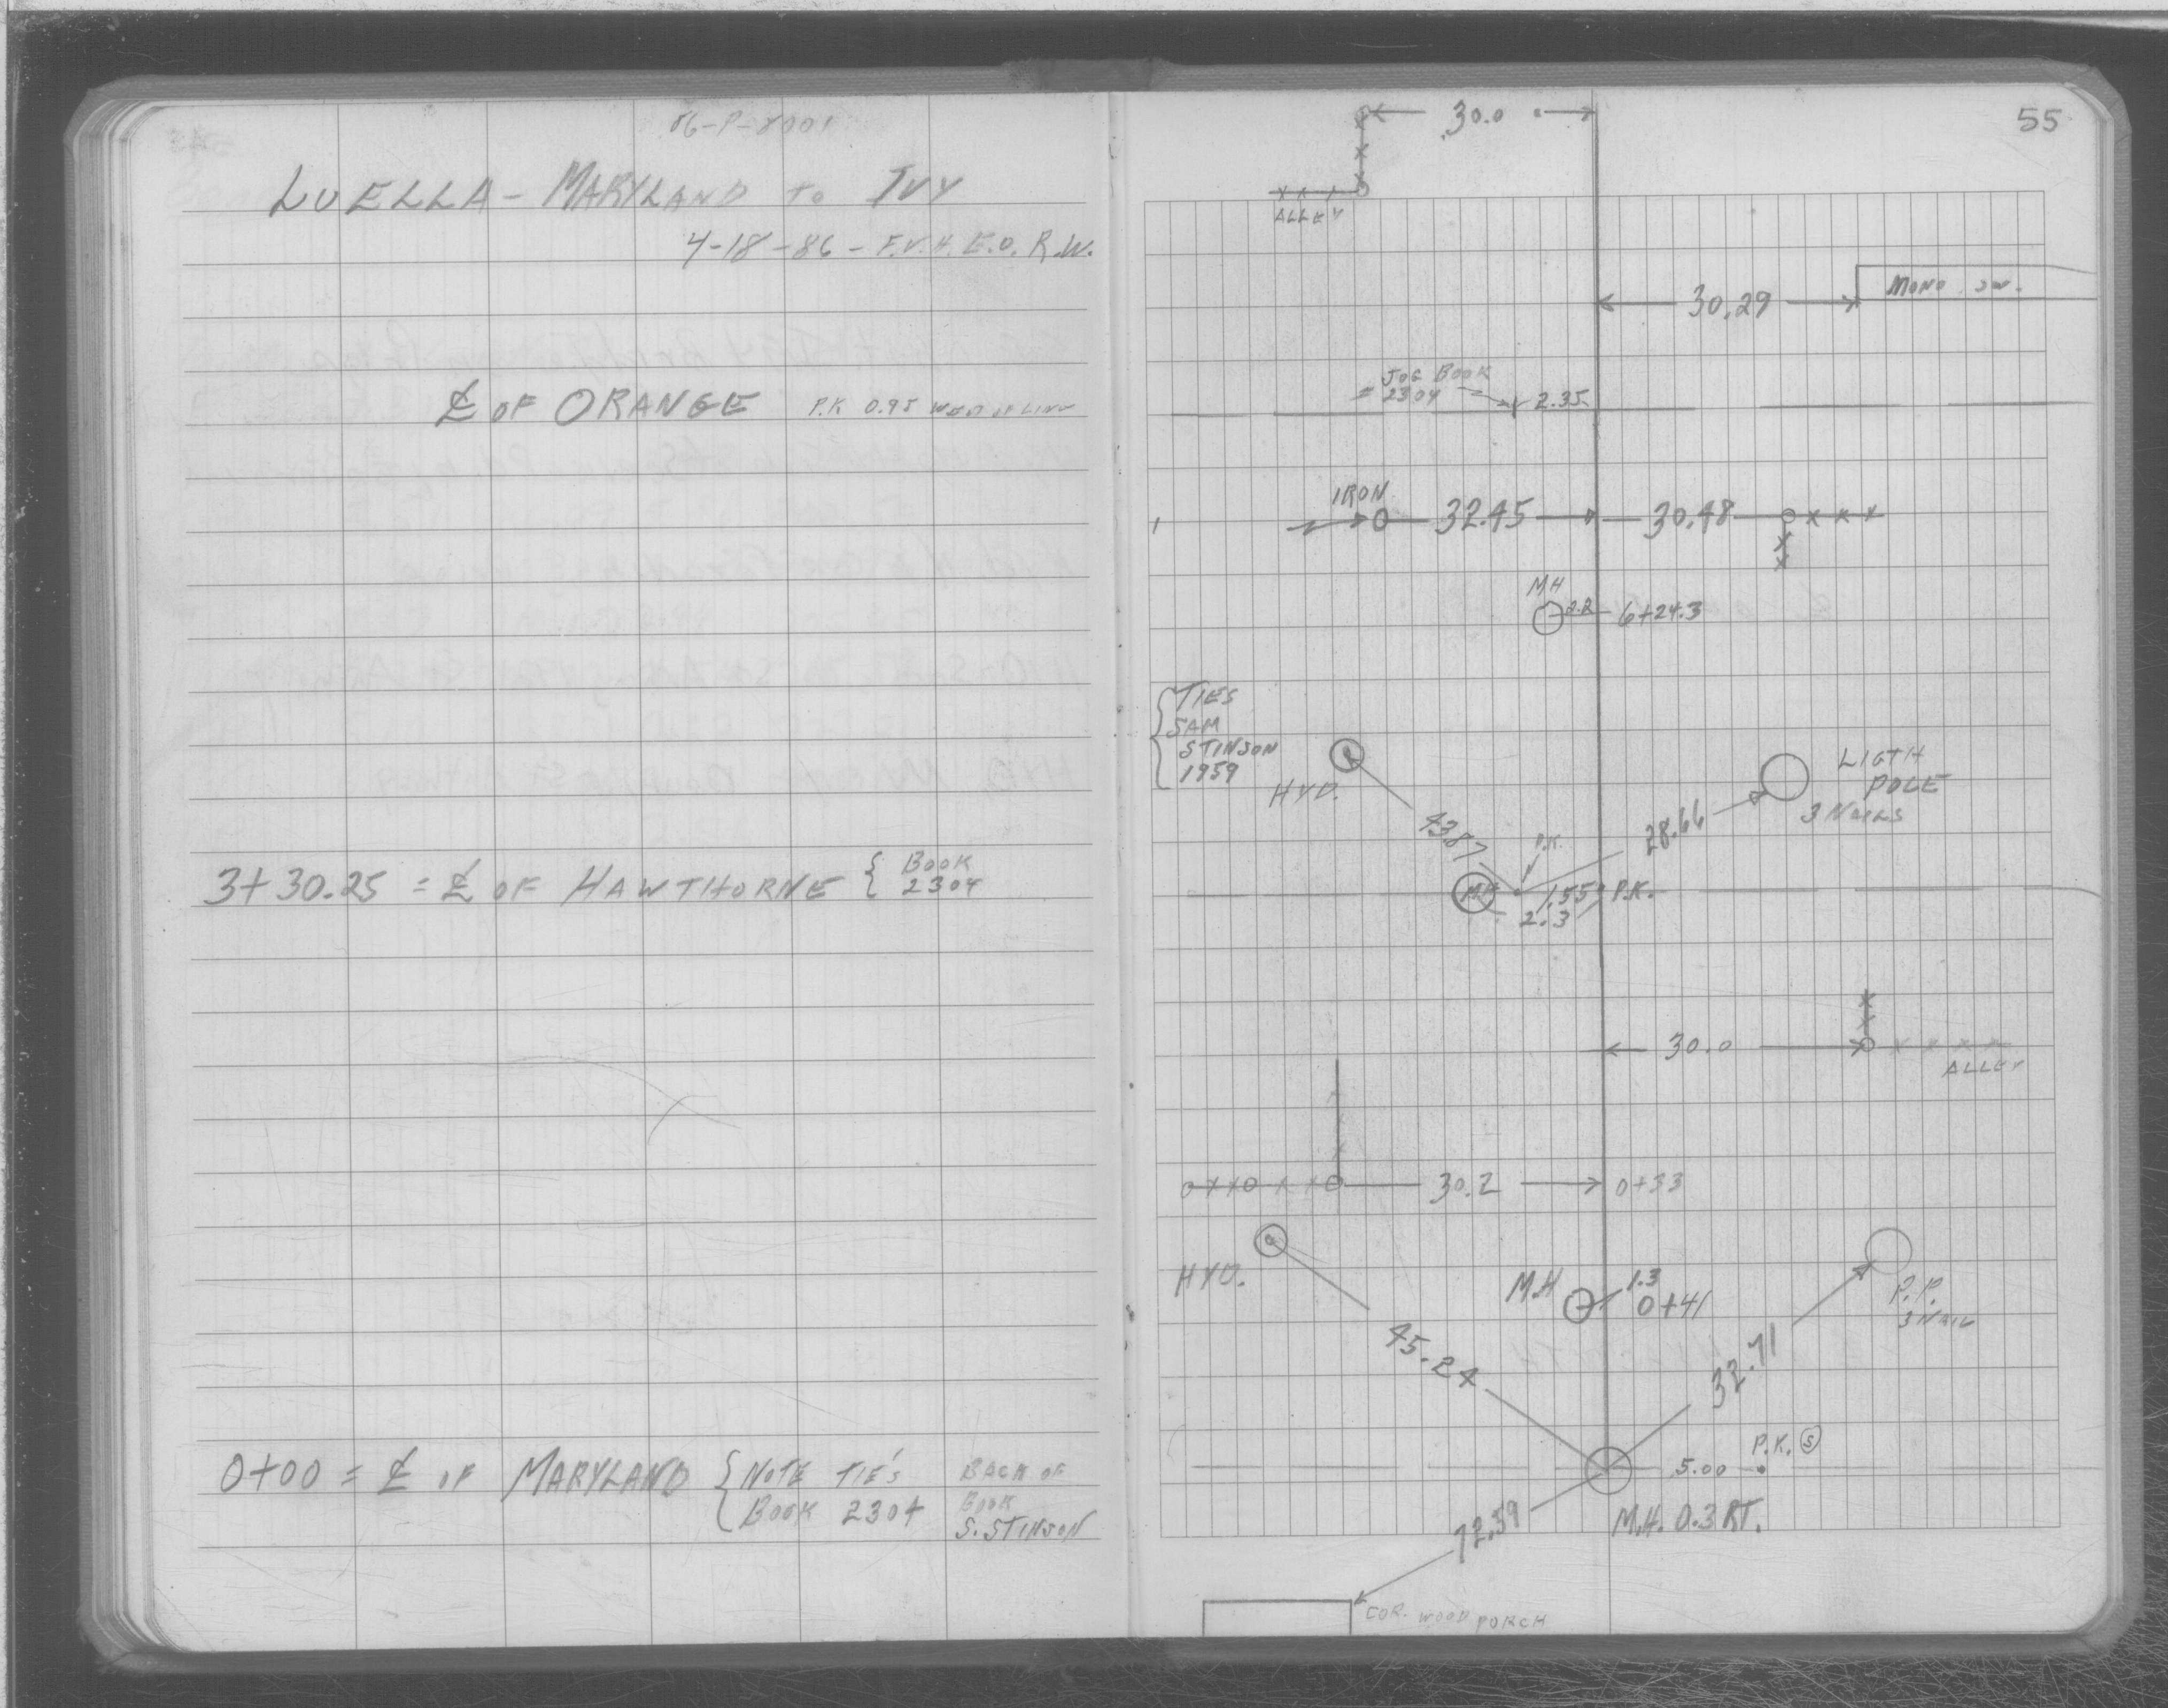 86-P-8001
LUELLA - MARYLAND TO IVY
4-18-86 - F.V.H. E.O. R.W.
℄ OF ORANGE P.K 0.95 WEST OF LINE
3+30.25 = ℄ OF HAWTHORNE { BOOK
2304
0+00 = ℄ OF MARYLAND { NOTE TIE'S BACK OF
BOOK 2304 BOOK
S. STINSON
55
30.0
ALLEY
30.29 MONO.
JOG BOOK
= 2304
2.35
IRON
32.45 30.48
MH
2.2 6+24.3
TIES
SAM
STINSON
1959
HYD.
LIGTH
POLE
3 NAILS
43.87
28.66
P.K.
MH 1.55 P.K.
2.3
30.0
ALLEY
30.2 0+33
HYD.
M.H 1.3
0+41
P.P.
3 NAIL
45.24
32.71
P.K. S
5.00
M.H. 0.3 RT.
72.59
COR. WOOD PORCH